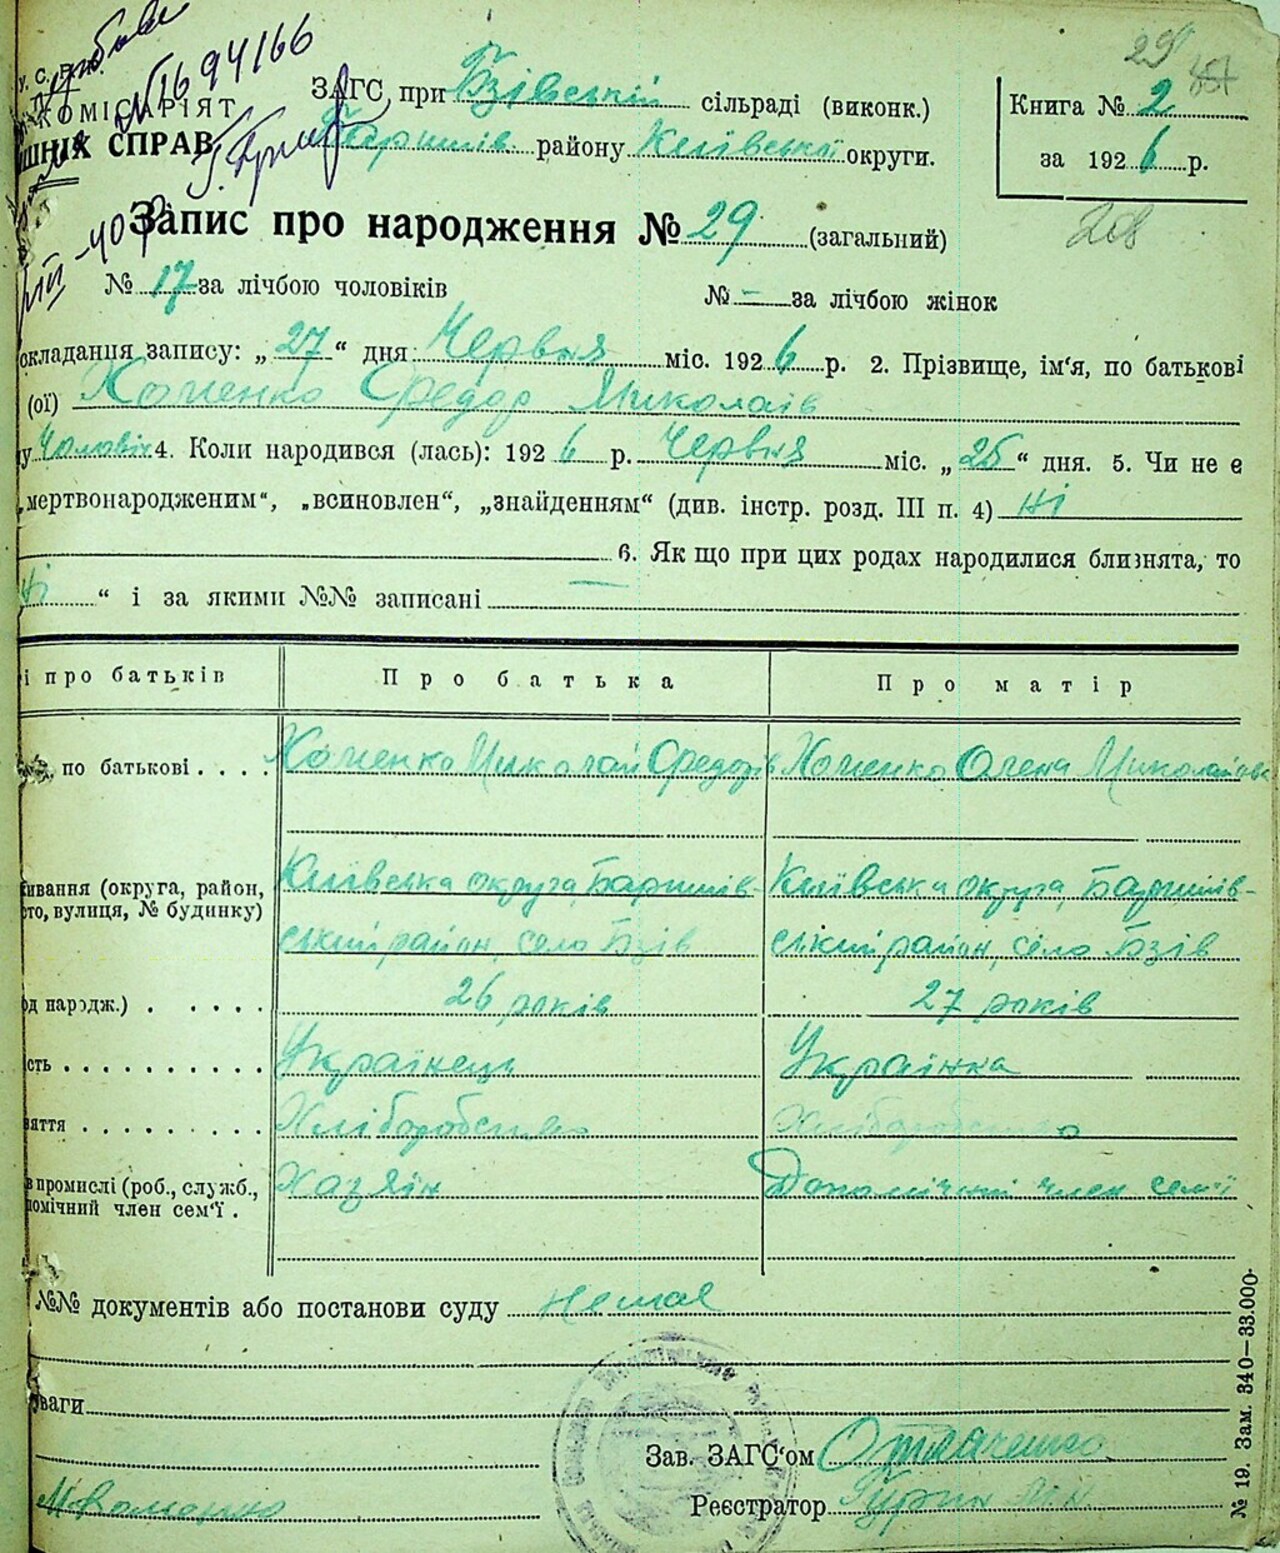 У. С.
КОМІСАРІЯТ
ШНІХ СПРАВ
№ 1694166
ЗАГС при Бзівській сільраді (виконк.)
Баришів. району Київської округи.
29
Книга № 2
за 1926 р.
208
Запис про народження № 29 (загальний)
№ 17 за лічбою чоловіків № — за лічбою жінок
складання запису: „27“ дня Червня міс. 1926 р. 2. Прізвище, ім'я, по батькові
(ої) Хоменко Федор Миколаів
у Чоловіч 4. Коли народився (лась): 1926 р. Червня міс. „25“ дня. 5. Чи не є
„мертвонародженим“, „всиновлен“, „знайденням“ (див. інстр. розд. III п. 4) Ні
6. Як що при цих родах народилися близнята, то
Ні “ і за якими №№ записані —
і про батьків Про батька Про матір
по батькові . . . . Хоменко Миколай Федорів Хоменко Олена Миколаївна
ивання (округа, район, Київська округа, Баришів- Київська округа, Баришів-
сто, вулиця, № будинку)
ський район, село Бзів ський район, село Бзів
од народж.) . . . . . 26 років 27 років
сть . . . . . . . . . . Українець Українка
яття . . . . . . . . . Хліборобство Хліборобство
в промислі (роб., служб., Хазяїн Допомічний член сем'ї
помічний член сем'ї .
№№ документів або постанови суду Немає
уваги
Зав. ЗАГС'ом
Реєстратор
№ 19. Зам. 340—33.000.